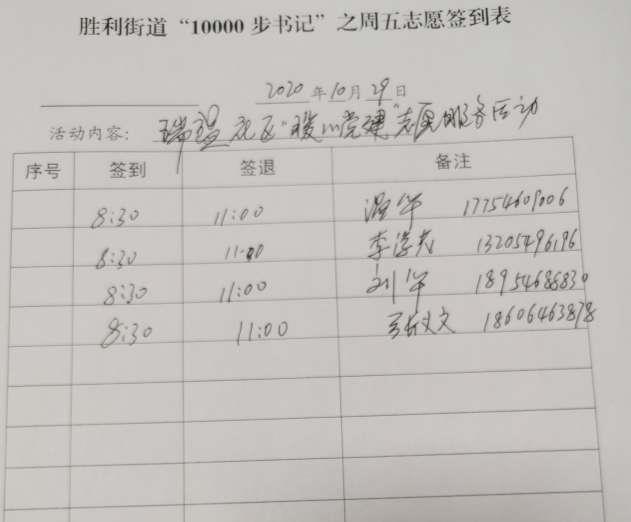 胜利街道“10000步书记”之周五志愿签到表
2020年10月29日
活动内容：瑞璟社区“暖心党建”志愿服务活动
序号 签到 签退 备注
8:30 11:00 华 17754609006
8:30 11:00 李 13205496196
8:30 11:00 刘华 18954686830
8:30 11:00 文 18606463878